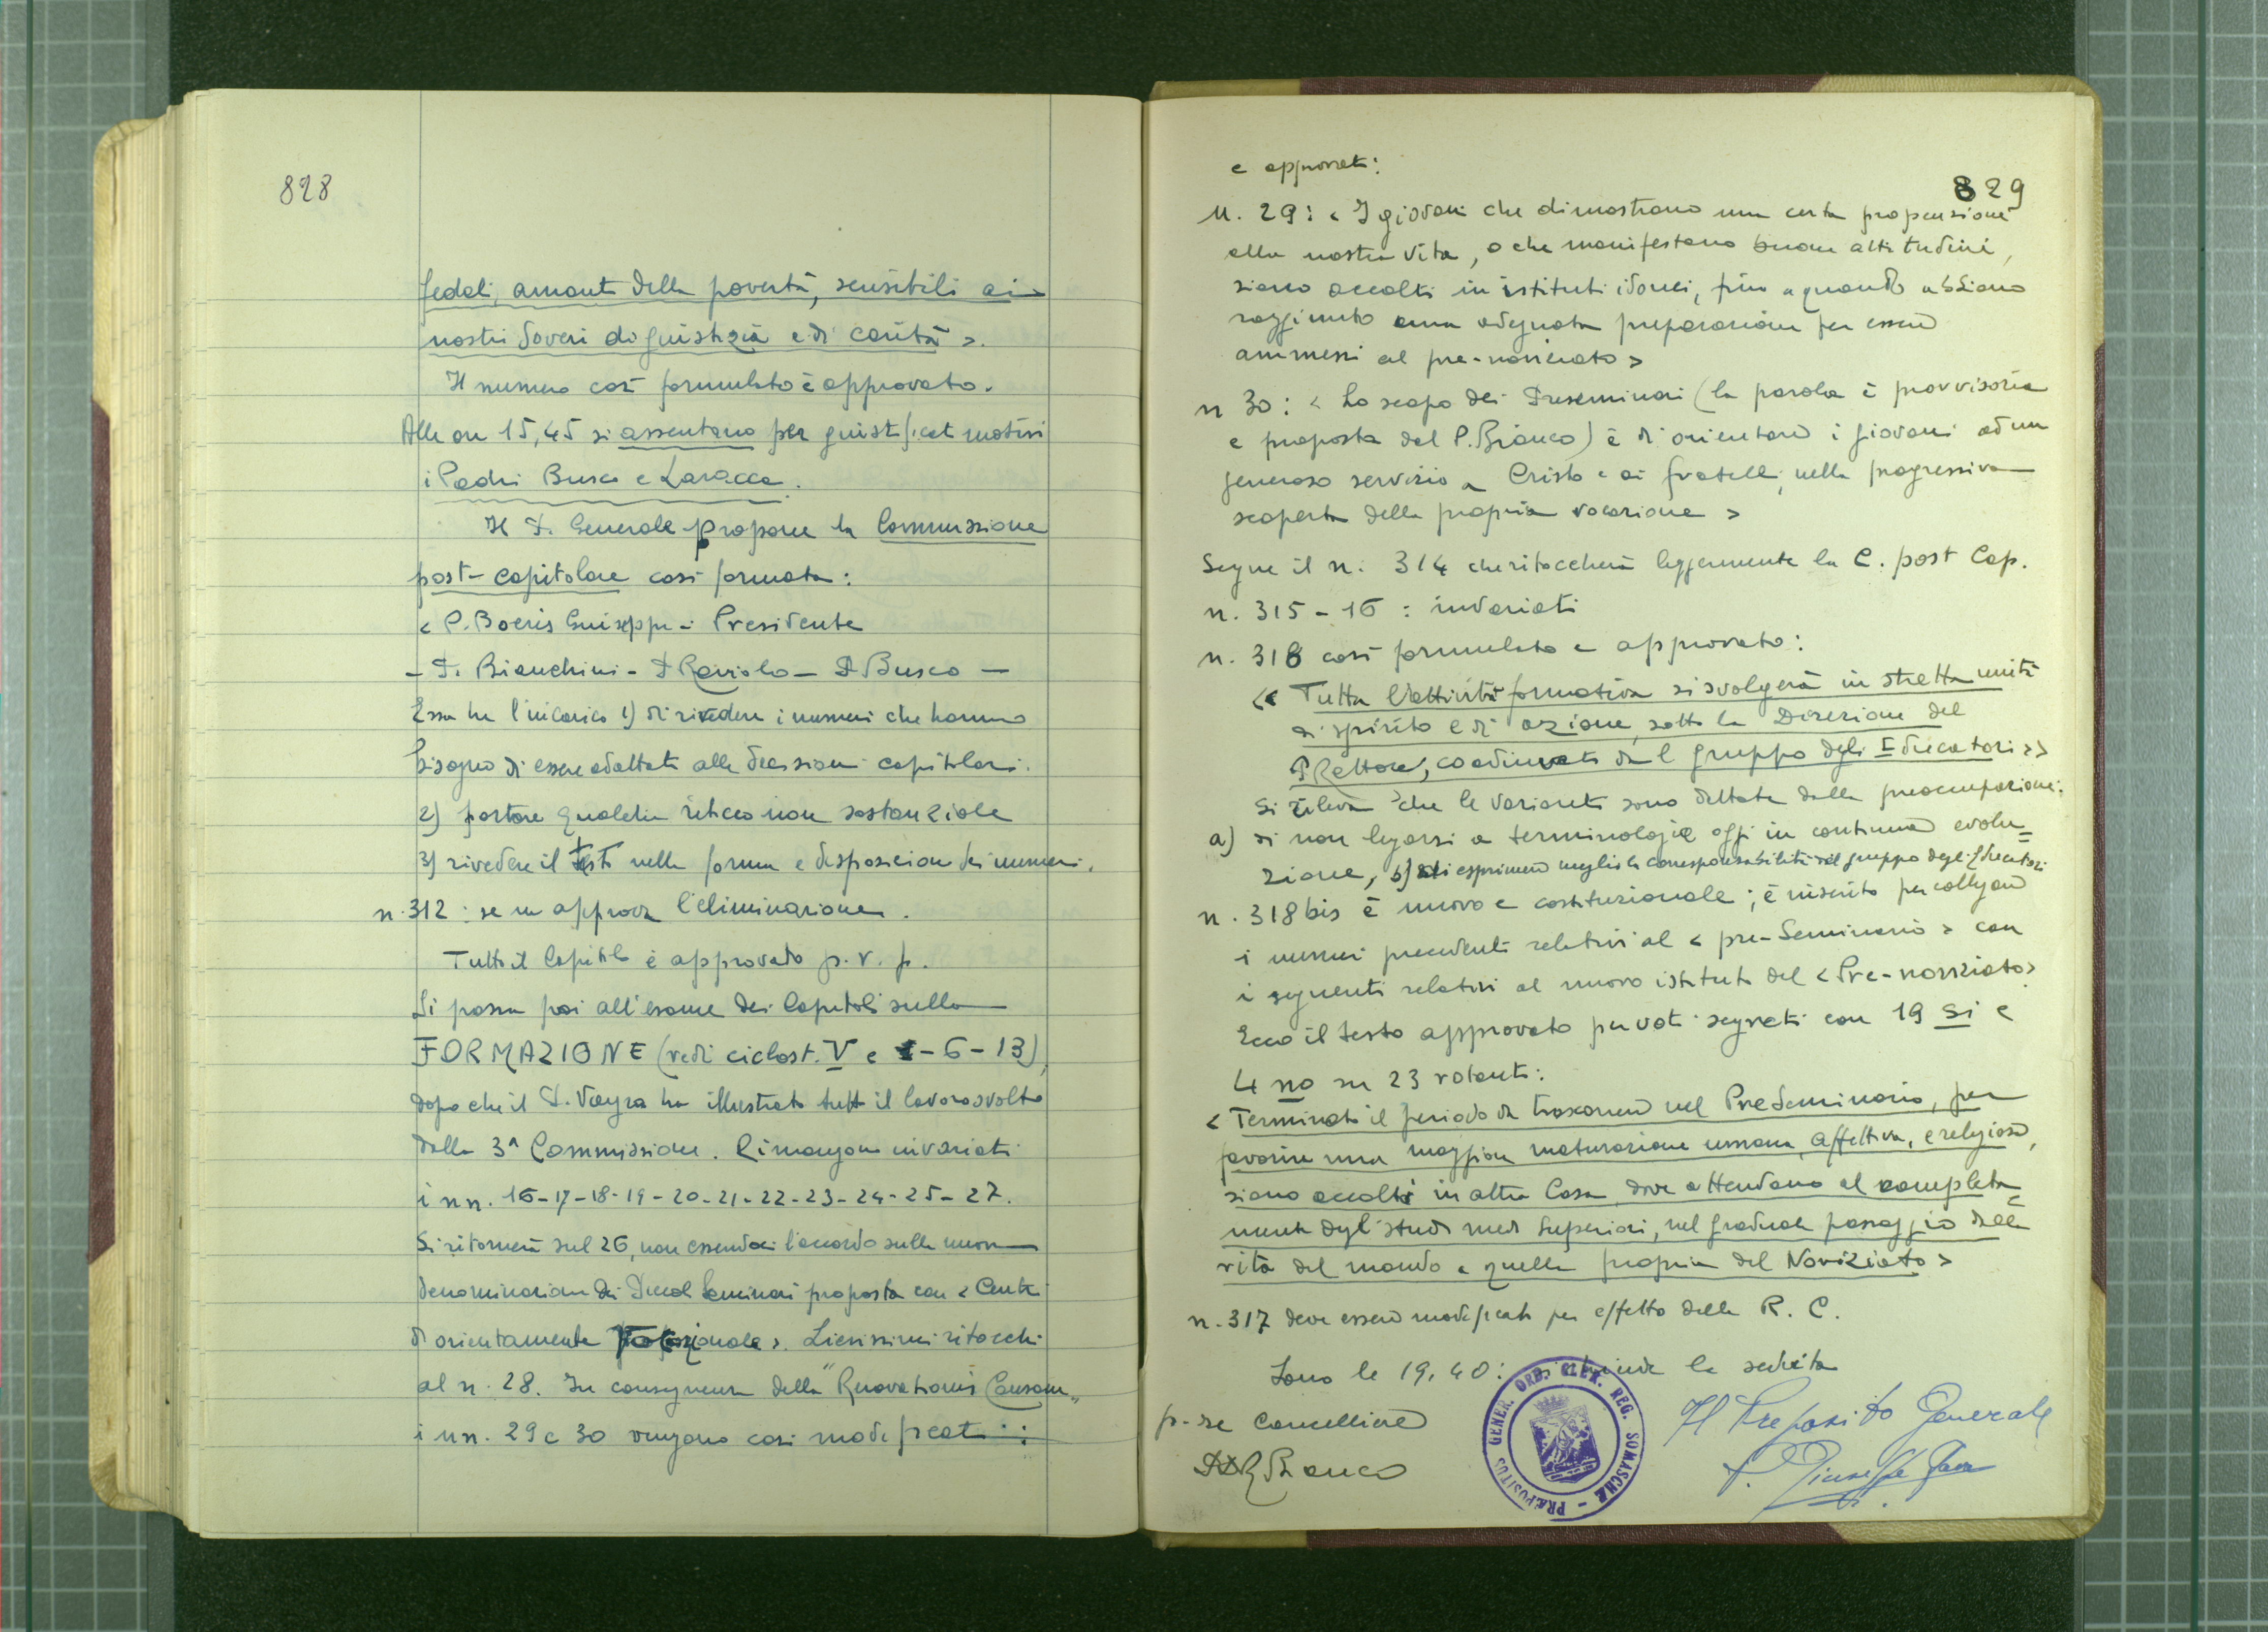 828
fedeli, amanti della povertà, sensibili ai
nostri doveri di giustizia e di carità >.
Il numero così formulato è approvato.
Alle ore 15,45 si assentano per giustificati motivi
i Padri Busco e Laracca.
Il P. Generale propone la Commissione
post-capitolare così formata:
< P. Boeris Giuseppe - Presidente
- P. Bianchini - P. Raviolo - P. Busco -
Essa ha l'incarico 1) di rivedere i numeri che hanno
bisogno di essere adattati alle decisioni capitolari.
2) portare qualche ritocco non sostanziale
3) rivedere il testo nella forma e disposizione dei numeri.
n. 312 : se ne approva l'eliminazione.
Tutto il Capitolo è approvato p. v. p.
Si passa poi all'esame dei Capitoli sulla
FORMAZIONE (vedi ciclost. V e - 6 - 13),
dopo che il P. Vayra ha illustrato tutto il lavoro svolto
dalla 3ª Commissione. Rimangono invariati
i nn. 16-17-18-19-20-21-22-23-24-25-27.
Si ritornerà sul 26, non essendoci l'accordo sulla nuova
denominazione dei Piccoli Seminari proposta con < Centri
di orientamento >. Lievissimi ritocchi
al n. 28. In conseguenza della "Renovationis Causam"
i nn. 29 e 30 vengono così modificati :
829
e approvati:
N. 29: < I giovani che dimostrano una certa propensione
alla nostra vita, o che manifestano buone attitudini,
siano accolti in istituti idonei, fino a quando abbiano
raggiunto una adeguata preparazione per essere
ammessi al pre-noviziato >
n 30: < Lo scopo dei Preseminari (la parola è provvisoria
e proposta dal P. Bianco) è di orientare i giovani ad un
generoso servizio a Cristo e ai fratelli, nella progressiva
scoperta della propria vocazione >
Segue il n. 314 che ritoccherà leggermente la C. post Cap.
n. 315-16 : invariati
n. 318 così formulato e approvato:
<< Tutta l'attività formativa si svolgerà in stretta unità
di spirito e di azione, sotto la Direzione del
P Rettore, coadiuvato dal gruppo degli Educatori >>
Si rileva che le varianti sono dettate dalla preoccupazione:
a) di non legarsi a terminologie oggi in continua evolu=
zione, b) di esprimere meglio la corresponsabilità del gruppo degli Educatori
n. 318 bis è nuovo e costituzionale ; è inserito per collegare
i numeri precedenti relativi al < pre-Seminario > con
i seguenti relativi al nuovo istituto del < Pre-noviziato >
Ecco il testo approvato per voti segreti con 19 si e
4 no su 23 votanti:
< Terminato il periodo da trascorrere nel PreSeminario, per
favorire una maggiore maturazione umana, affettiva, e religiosa,
siano accolti in altra Casa dove attendano al completa=
mento degli studi medi Superiori, nel graduale passaggio dalla
vita del mondo a quella propria del Noviziato >
n. 317 deve essere modificato per effetto della R. C.
Sono le 19,40: si chiude la seduta
p. se Cancelliere
Bianco
Il Preposito Generale
P. Giuseppe Fava
PRAEPOSITUS GENER. ORD. CLER. REG. SOMASCHAE